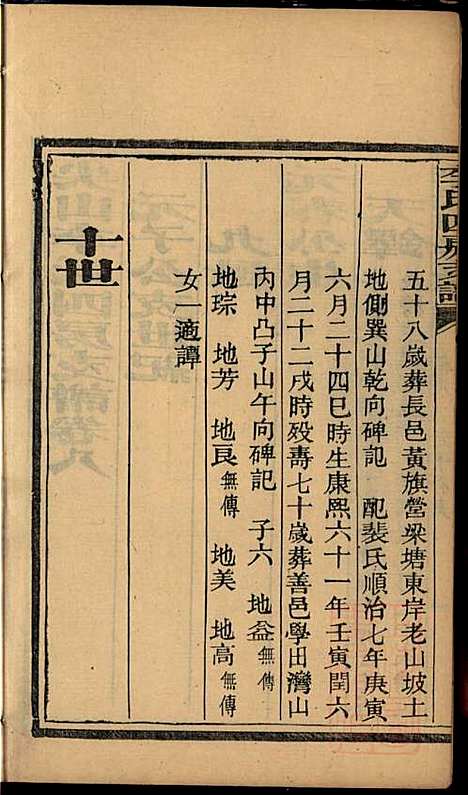 李氏四房支譜
五十八歲葬長邑黃旗營梁塘東岸老山坡土
地側巽山乾向碑記 配裴氏順治七年庚寅
六月二十四巳時生康熙六十一年壬寅閏六
月二十二戌時歿壽七十歲葬善邑學田灣山
內中凸子山午向碑記 子六 地益無傳
地琮 地芳 地良無傳 地美 地高無傳
女一適譚
十世